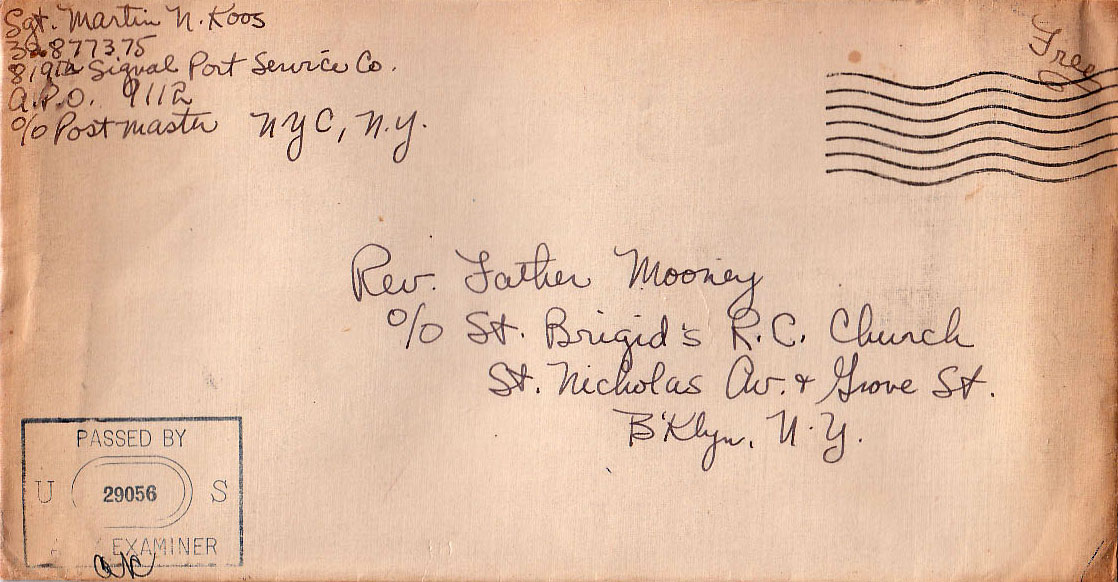 Sgt. Martin N. Koos
32877375
819th Signal Port Service Co.
A.P.O. 9112
c/o Postmaster NYC, N.Y.
Free
Rev. Father Mooney
c/o St. Brigid's R.C. Church
St. Nicholas Av. & Grove St.
B'Klyn, N.Y.
PASSED BY
U 29056 S
EXAMINER